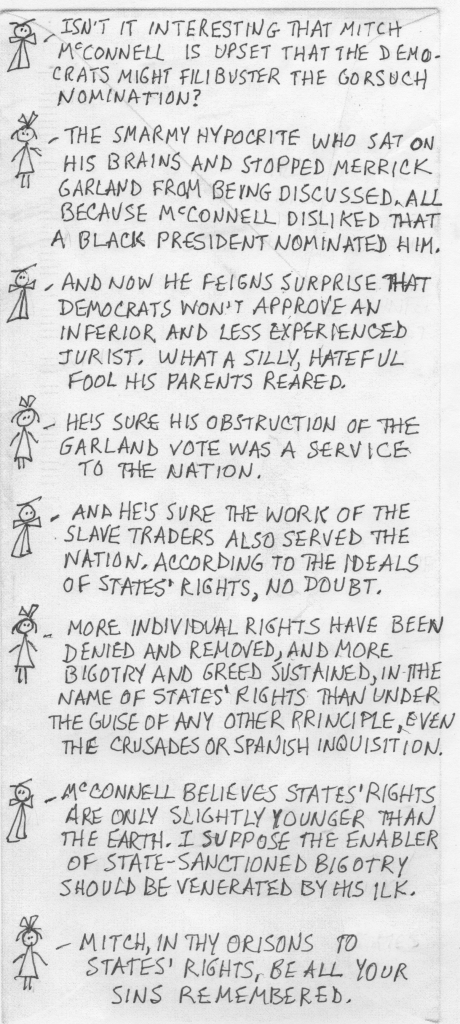 ISN'T IT INTERESTING THAT MITCH
McCONNELL IS UPSET THAT THE DEMO-
CRATS MIGHT FILIBUSTER THE GORSUCH
NOMINATION?
- THE SMARMY HYPOCRITE WHO SAT ON
HIS BRAINS AND STOPPED MERRICK
GARLAND FROM BEING DISCUSSED, ALL
BECAUSE McCONNELL DISLIKED THAT
A BLACK PRESIDENT NOMINATED HIM.
- AND NOW HE FEIGNS SURPRISE THAT
DEMOCRATS WON'T APPROVE AN
INFERIOR AND LESS EXPERIENCED
JURIST. WHAT A SILLY, HATEFUL
FOOL HIS PARENTS REARED.
- HE'S SURE HIS OBSTRUCTION OF THE
GARLAND VOTE WAS A SERVICE
TO THE NATION.
- AND HE'S SURE THE WORK OF THE
SLAVE TRADERS ALSO SERVED THE
NATION. ACCORDING TO THE IDEALS
OF STATES' RIGHTS, NO DOUBT.
- MORE INDIVIDUAL RIGHTS HAVE BEEN
DENIED AND REMOVED, AND MORE
BIGOTRY AND GREED SUSTAINED, IN THE
NAME OF STATES' RIGHTS THAN UNDER
THE GUISE OF ANY OTHER PRINCIPLE, EVEN
THE CRUSADES OR SPANISH INQUISITION.
- McCONNELL BELIEVES STATES' RIGHTS
ARE ONLY SLIGHTLY YOUNGER THAN
THE EARTH. I SUPPOSE THE ENABLER
OF STATE-SANCTIONED BIGOTRY
SHOULD BE VENERATED BY HIS ILK.
- MITCH, IN THY ORISONS TO
STATES' RIGHTS, BE ALL YOUR
SINS REMEMBERED.